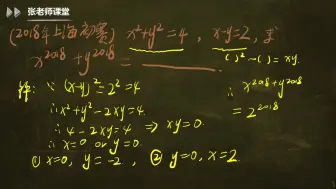 张老师课堂
(2018年上海初赛) x²+y²=4, x-y=2, 求
x²⁰¹⁸+y²⁰¹⁸=
( )²-( )=xy.
解: ∵ (x-y)²=2²=4
∴ x²+y²-2xy=4.
∴ 4-2xy=4 ⇒ xy=0.
∴ x=0 or y=0.
① x=0, y=-2, ② y=0, x=2.
∴ x²⁰¹⁸+y²⁰¹⁸
=2²⁰¹⁸